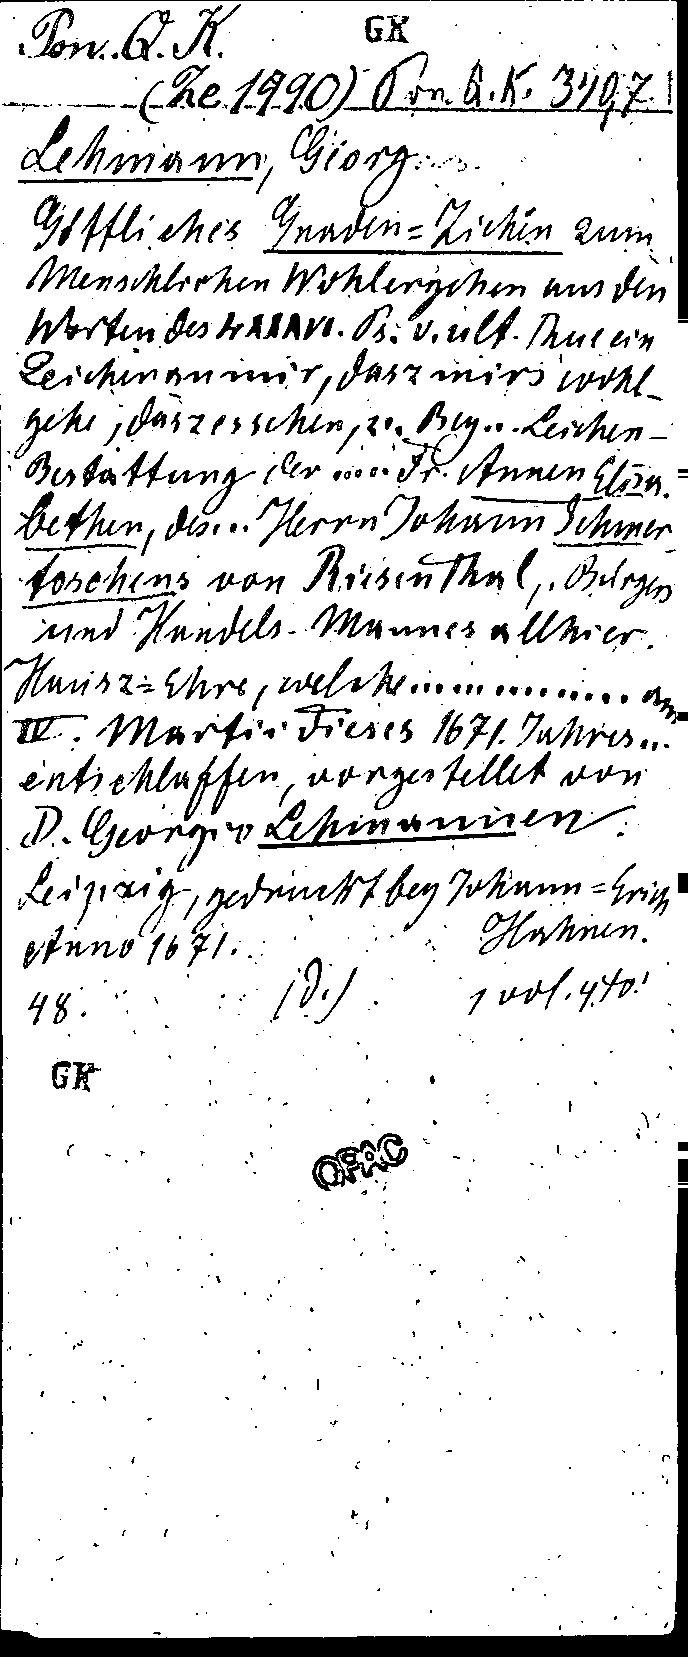 Pon. Q. K. GK
(Ze 1990) Pon Q.K. 340,7.
Lehmann, Georg
Göttliches Gnaden=Zichen zum
Menschlichen Wohlergehen aus den
Worten des LXXXVI. Ps. v. ult. Thue ein
Zeichen an mir, dasz mirs wohl-
gehe, dasz es sehen, 2c. Bey .. Leichen-
Bestattung der .... Fr. Annen Elisa.
bethen, des... Herrn Johann Schmer
toschens von Risenthal, . Bürgers
und Handels-Mannes allhier.
Hausz=Ehre, welche ................ am
IV. Martii dieses 1671. Jahres ...
entschlaffen, vorgestellet von
D. Georgio Lehmannen.
Leipzig, gedruckt bey Johann=Erich
Anno 1671. Hahnen.
48. (d.) 1 vol. 4to.
GK
OFAC